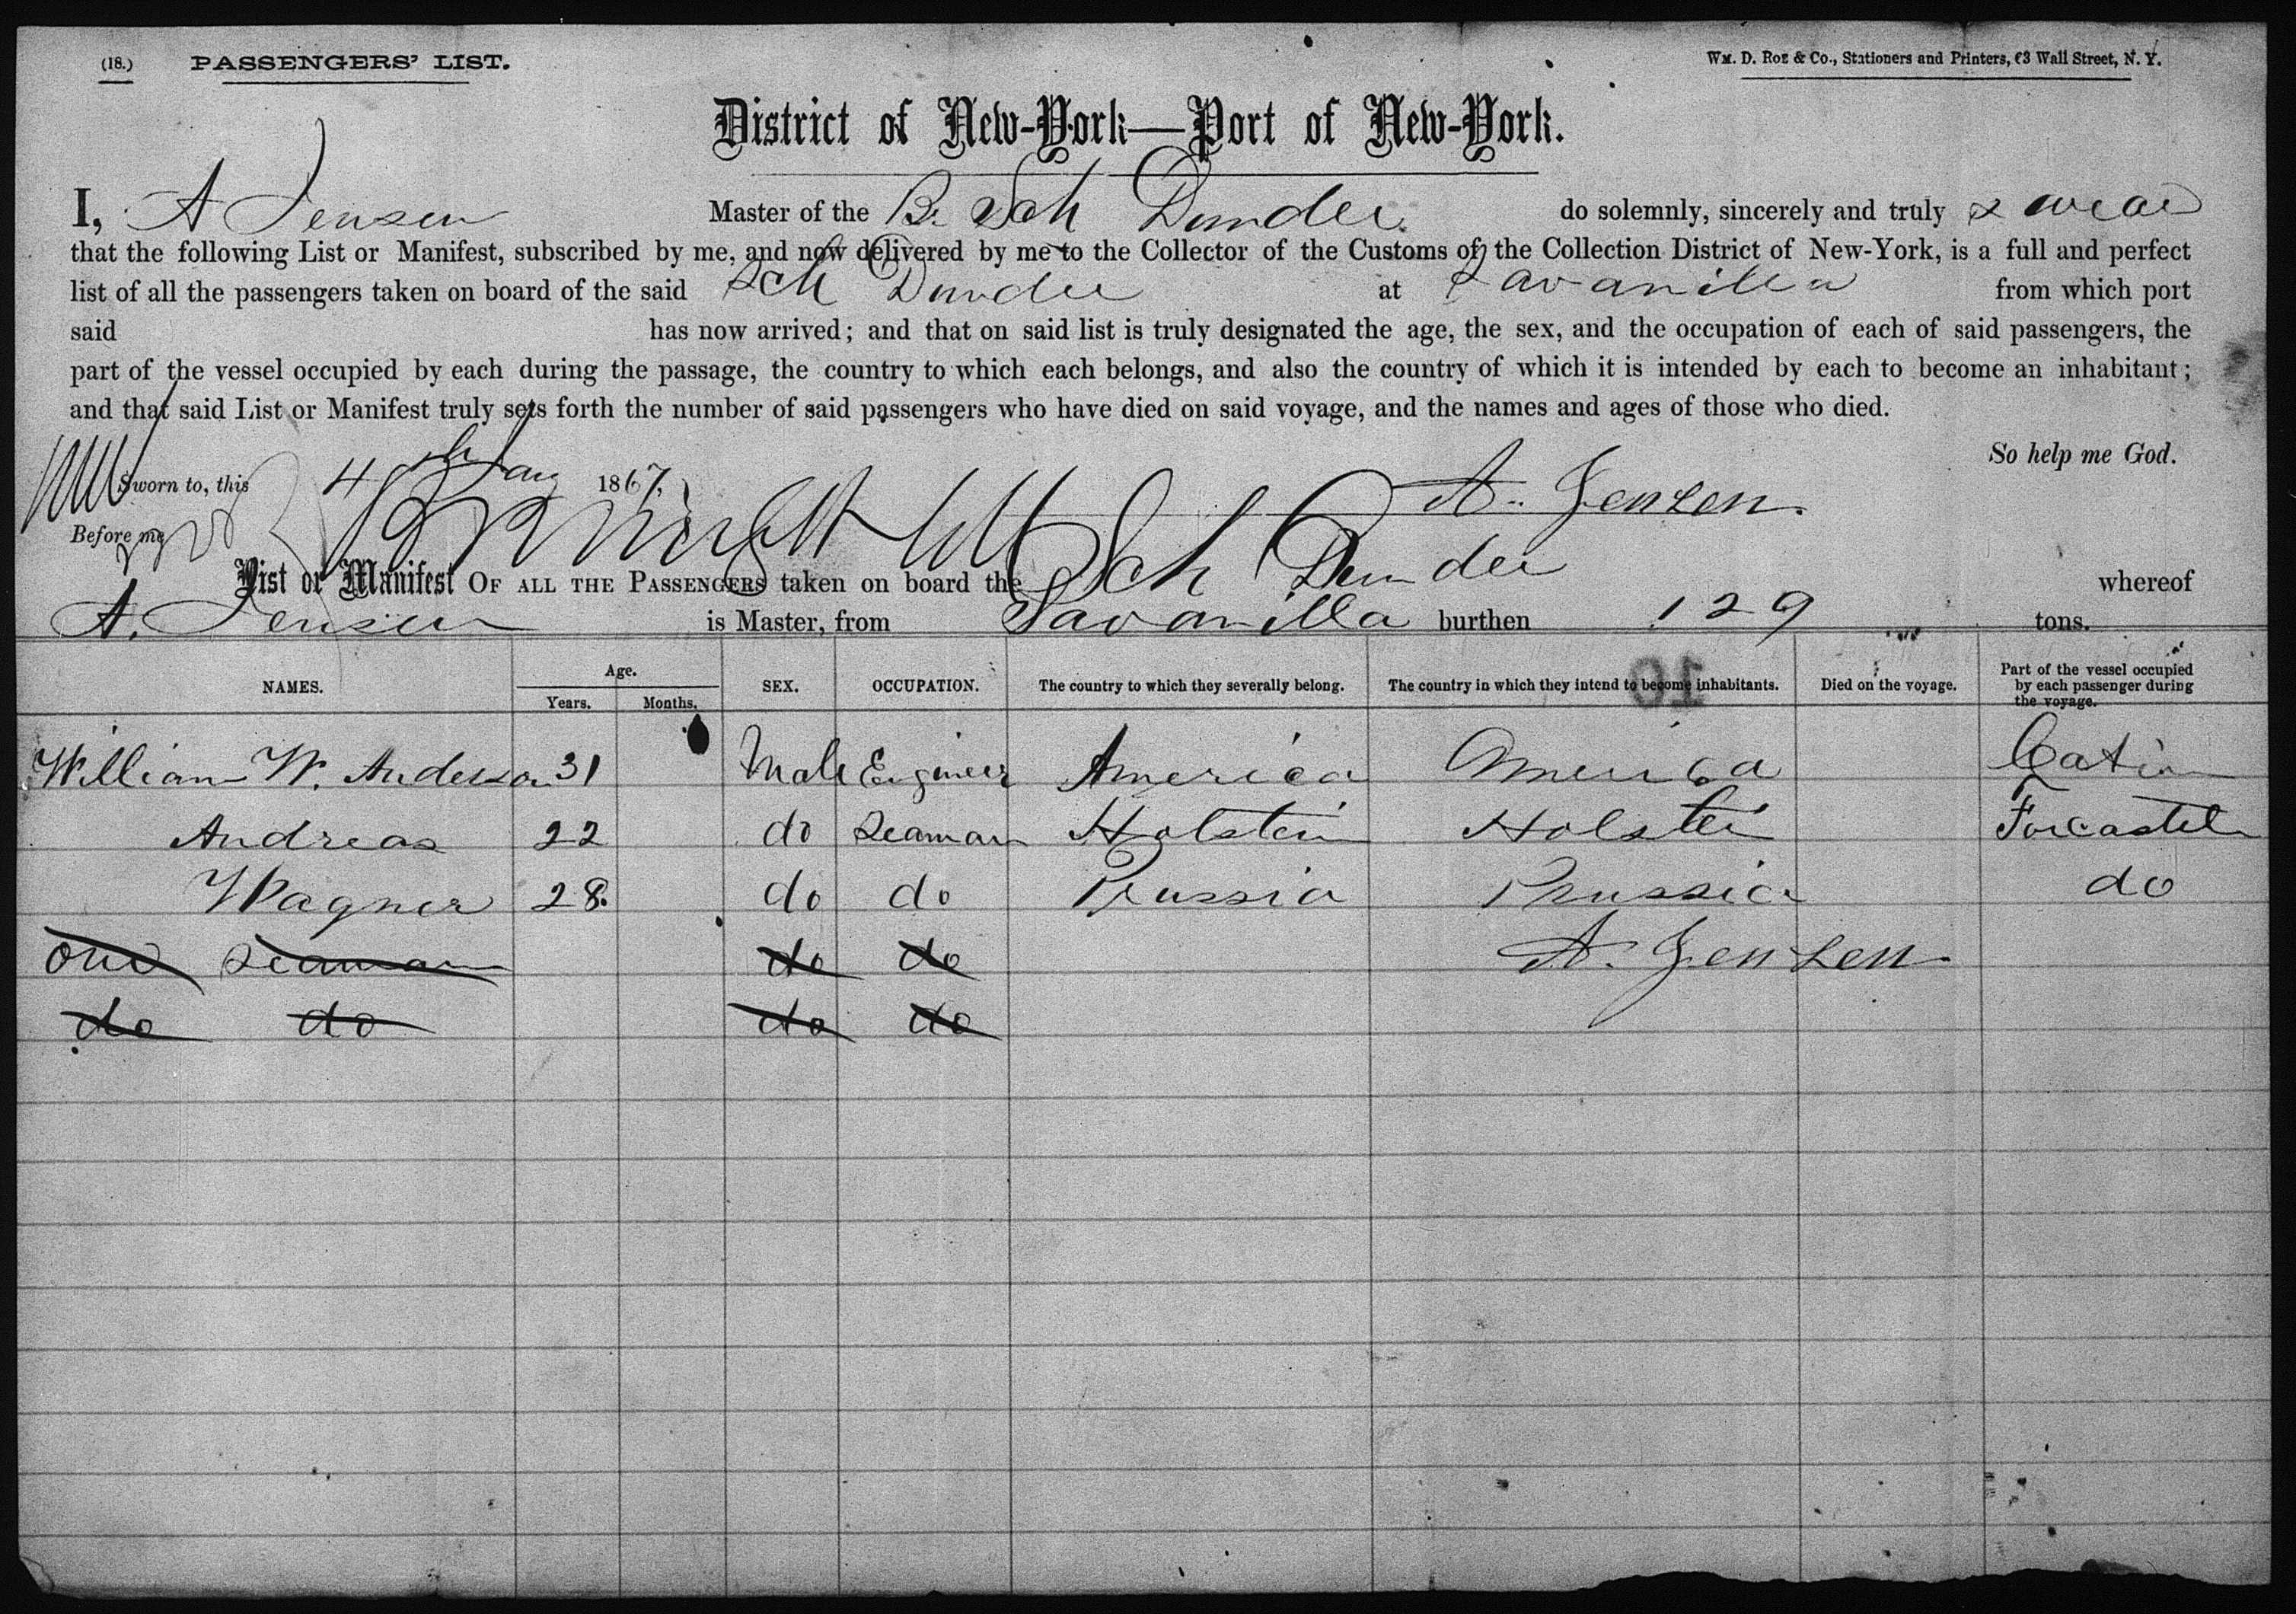 (18.) PASSENGERS' LIST. Wm. D. Roe & Co., Stationers and Printers, 63 Wall Street, N. Y.
District of New-York—Port of New-York.
I, A Jensen Master of the Br Sch Dundee. do solemnly, sincerely and truly swear
that the following List or Manifest, subscribed by me, and now delivered by me to the Collector of the Customs of the Collection District of New-York, is a full and perfect
list of all the passengers taken on board of the said Sch Dundee at Savanilla from which port
said has now arrived; and that on said list is truly designated the age, the sex, and the occupation of each of said passengers, the
part of the vessel occupied by each during the passage, the country to which each belongs, and also the country of which it is intended by each to become an inhabitant;
and that said List or Manifest truly sets forth the number of said passengers who have died on said voyage, and the names and ages of those who died.
So help me God.
Sworn to, this 4th Jany 1867, A. Jensen.
Before me
List or Manifest OF ALL THE PASSENGERS taken on board the Sch Dundee whereof
A. Jensen is Master, from Savanilla burthen 129 tons.
NAMES. Age. Years. Months. SEX. OCCUPATION. The country to which they severally belong. The country in which they intend to become inhabitants. Died on the voyage. Part of the vessel occupied by each passenger during the voyage.
10
William W. Anderson 31 Male Engineer America America Cabin
Andreas 22 do Seaman Holstein Holstein Forcastel
Wagner 28. do do Prussia Prussia do
one Seaman do do A. Jensen
do do do do